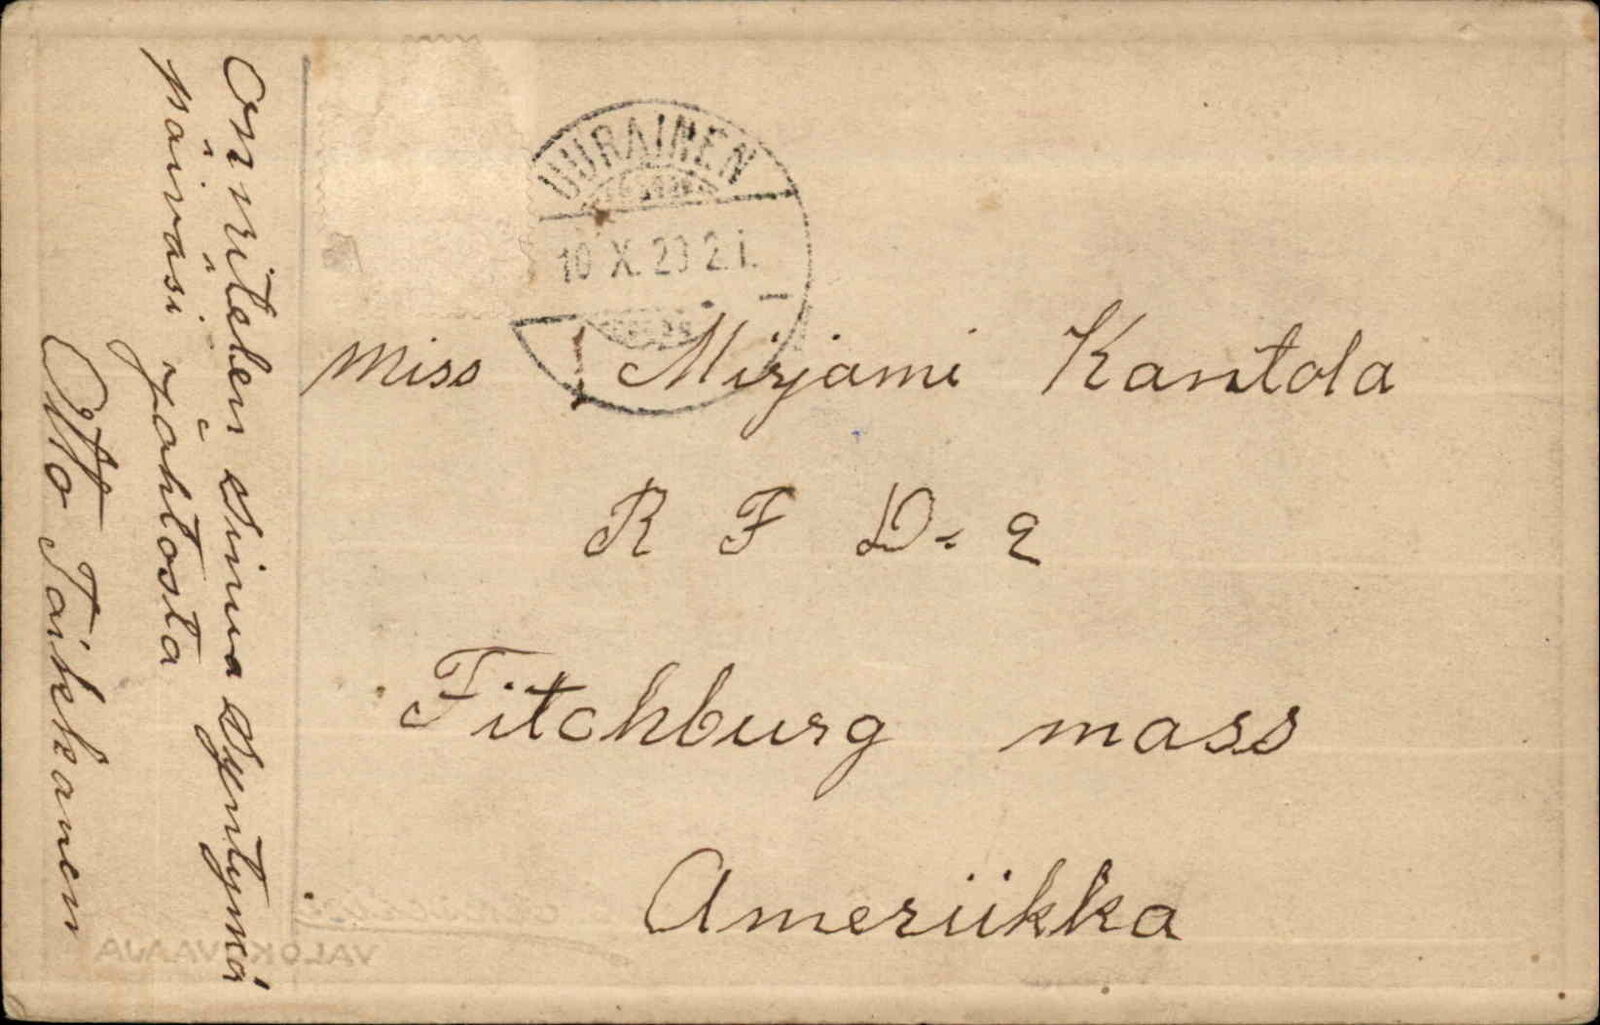 Onnittelen sinua syntymä
päiväsi johtosta
Otto Taikkanen
UURAINEN
10 X. 23 2 i.
Miss Mirjami Kantola
R F D - 2
Fitchburg mass
Ameriikka
VALOKUVAAJA